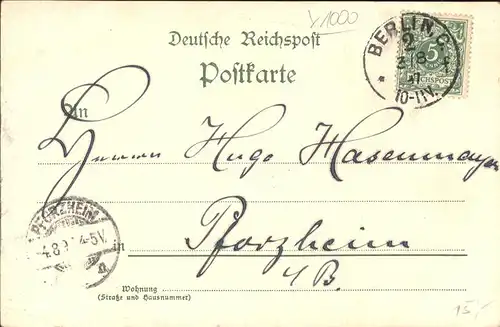 Y1000
Deutsche Reichspost
Postkarte
BERLIN C.
2
3 8
97
* 10-11V.
5
REICHSPOST
An
Herrn Hugo Hasenmayer
PFORZHEIM
4.8.9 4-5V.
in Pforzheim
i/B.
Wohnung
(Straße und Hausnummer)
15,-